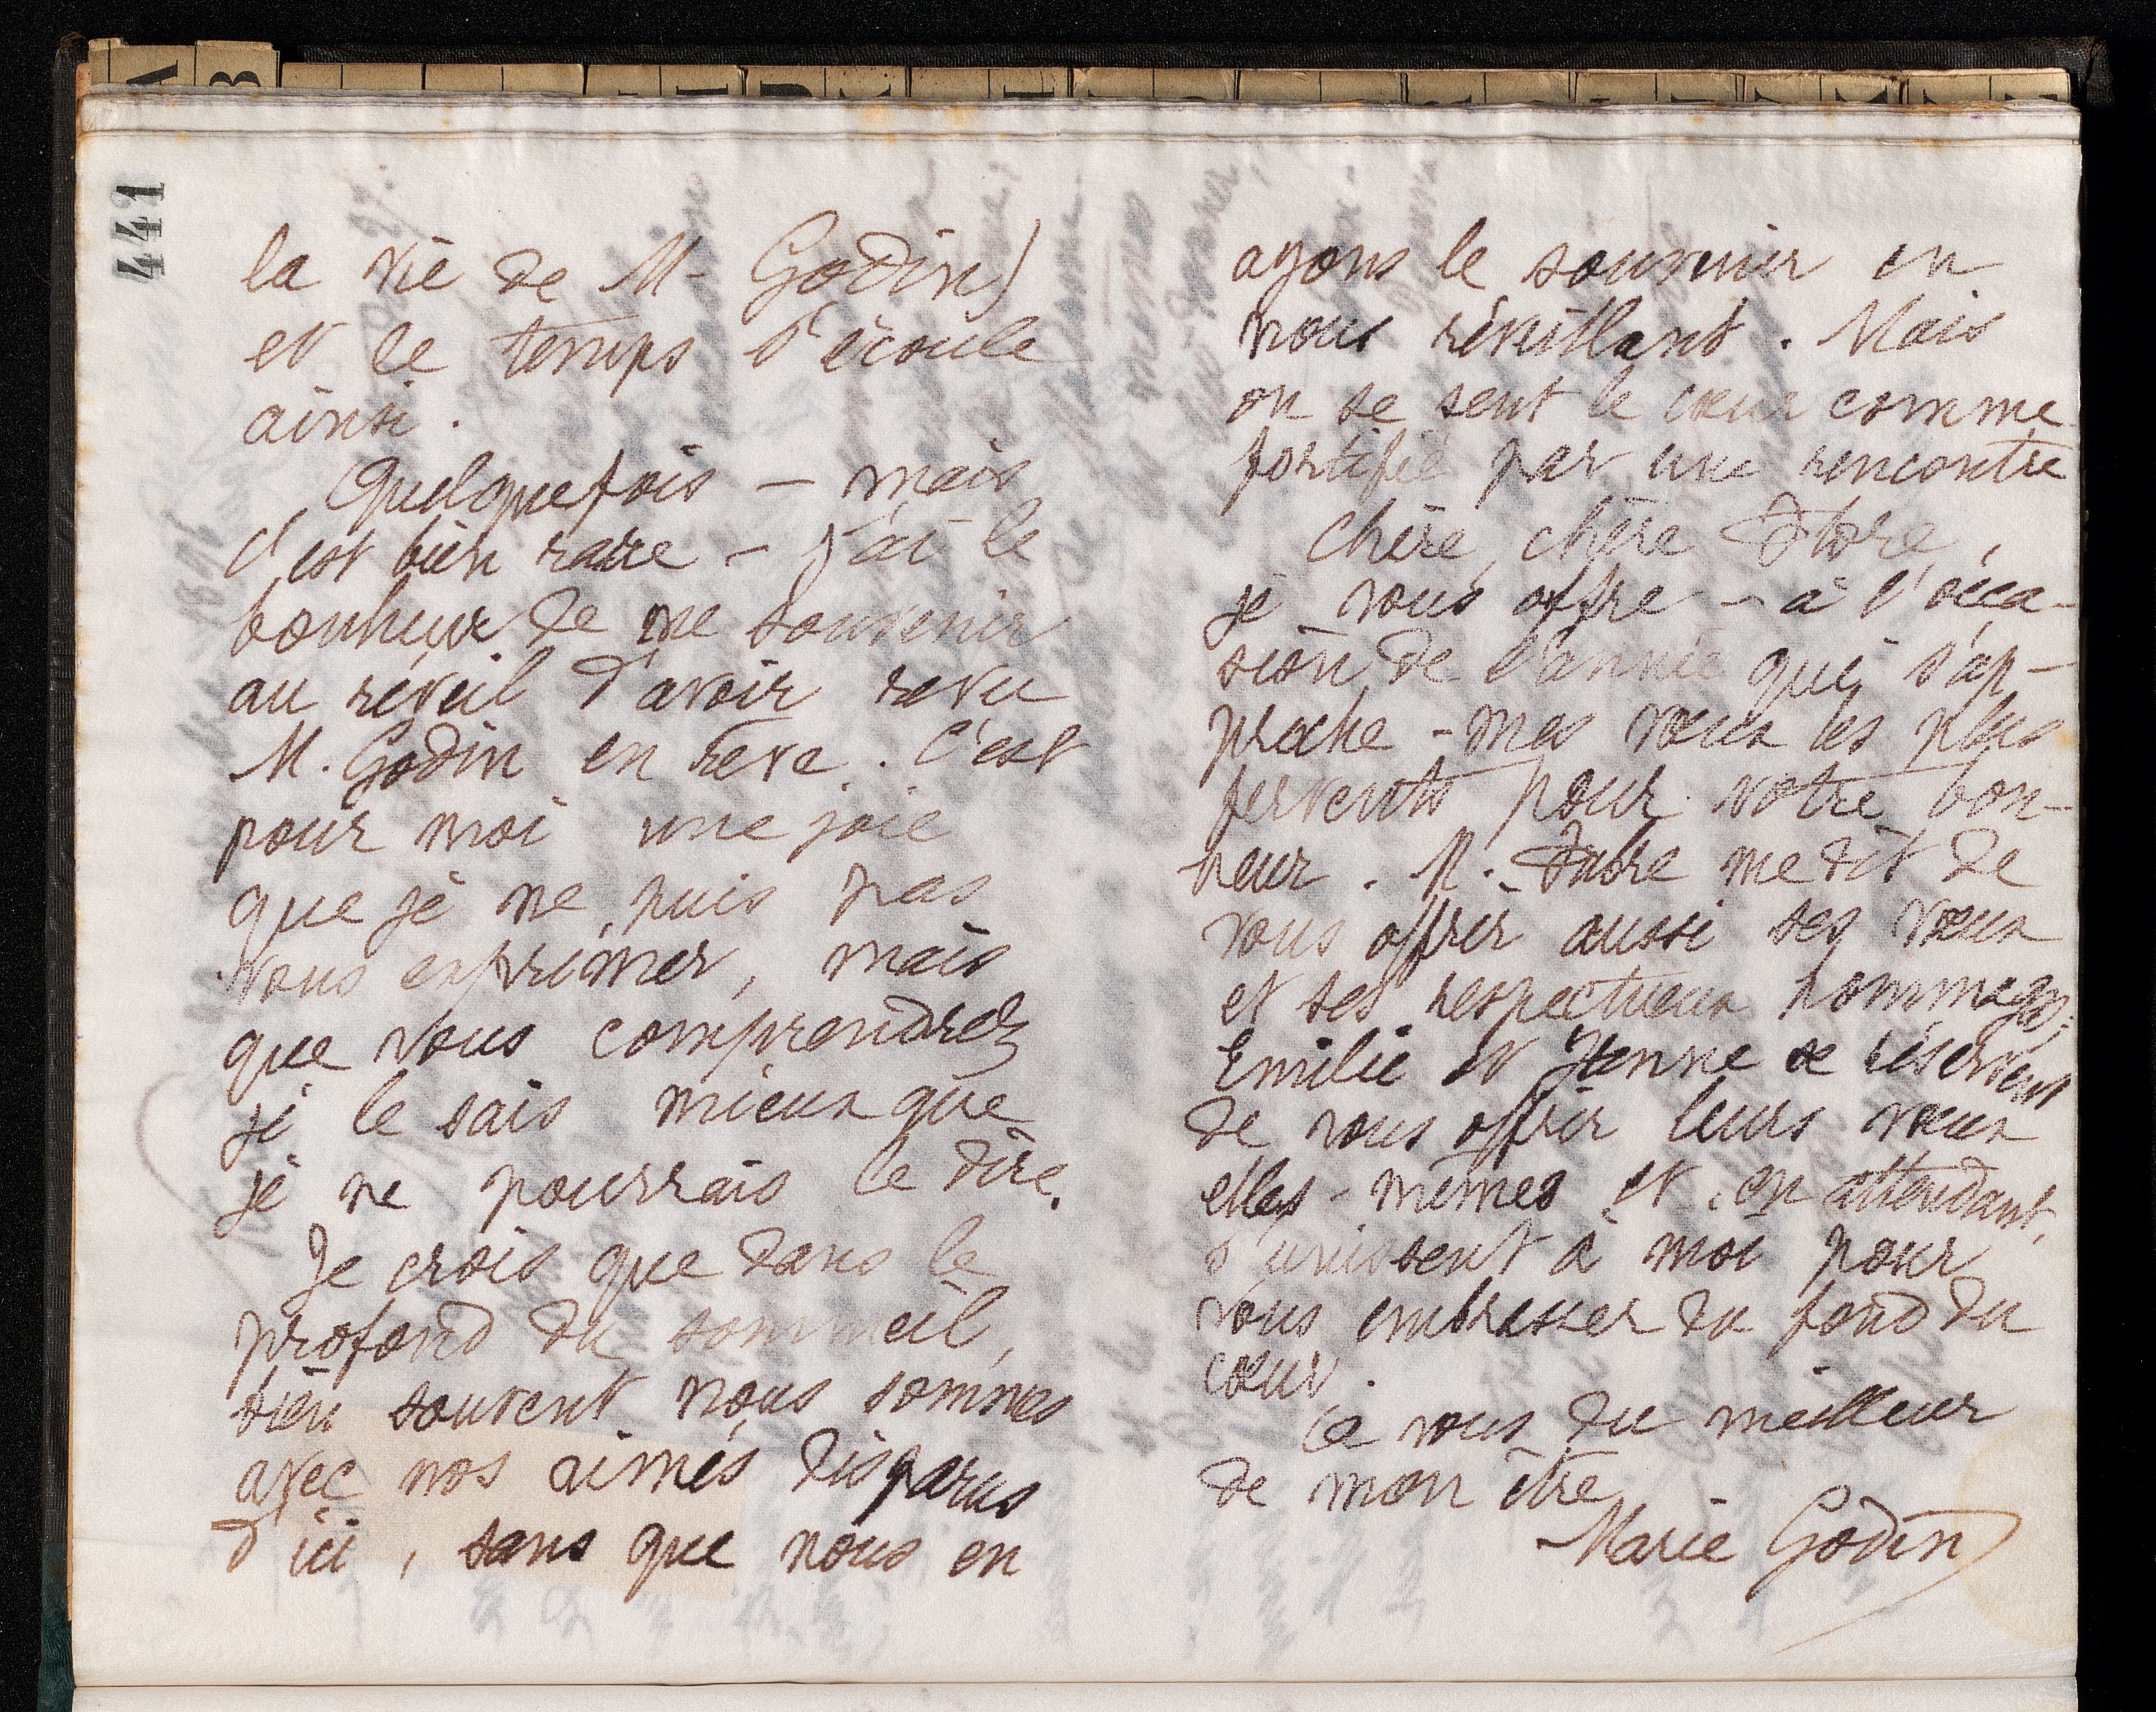 441
la vie de M. Godin)
et le temps s'écoule
ainsi.
Quelquefois – mais
c'est bien rare – j'ai le
bonheur de me souvenir
au réveil d'avoir revu
M. Godin en rêve. C'est
pour moi une joie
que je ne puis pas
vous exprimer, mais
que vous comprendrez
je le sais mieux que
je ne pourrais le dire.
Je crois que dans le
profond du sommeil,
bien souvent nous sommes
avec nos aimés disparus
d'ici, sans que nous en
ayons le souvenir en
nous réveillant. Mais
on se sent le cœur comme
fortifié par une rencontre
Chère, chère
je vous offre – à l'occa-
sion de l'année qui s'ap-
proche – mes vœux les plus
fervents pour votre bon-
heur. M. me dit de
vous offrir aussi ses vœux
et ses respectueux hommages;
Emilie et Jeanne se réservent
de vous offrir leurs vœux
elles-mêmes et, en attendant,
s'unissent à moi pour
vous embrasser du fond du
cœur.
A vous du meilleur
de mon être
Marie Godin